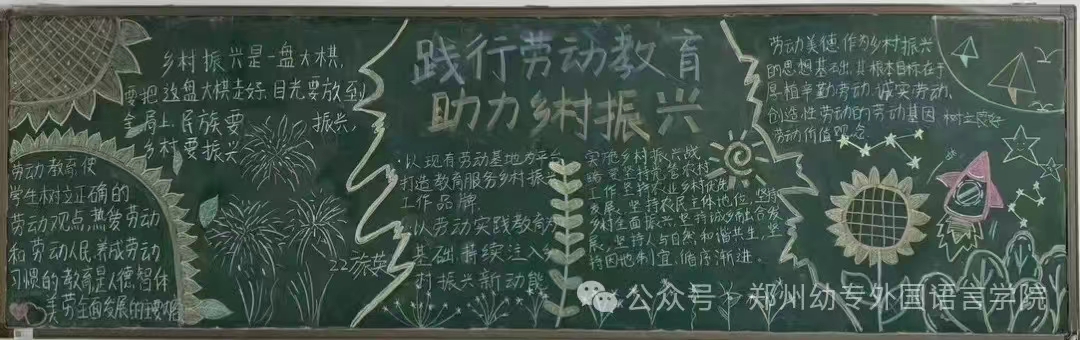 乡村振兴是一盘大棋,
要把这盘大棋走好,目光要放到
全局上,民族要振兴,
乡村要振兴
劳动教育使
学生树立正确的
劳动观点,热爱劳动
和劳动人民,养成劳动
习惯的教育是德智体
美劳全面发展的
22旅英
践行劳动教育
助力乡村振兴
·以现有劳动基地为平台
打造教育服务乡村振兴
工作品牌.
·以劳动实践教育为
基础,持续注入乡
村振兴新动能
实施乡村振兴战
略要坚持党管农村
工作,坚持农业乡村优先
发展,坚持农民主体地位,坚持
乡村全面振兴,坚持城乡融合发
展,坚持人与自然和谐共生,坚
持因地制宜、循序渐进.
劳动美德作为乡村振兴
的思想基础,其根本目标在于
厚植辛勤劳动、诚实劳动、
创造性劳动的劳动基因,树立良好
劳动价值观念.
公众号·郑州幼专外国语言学院